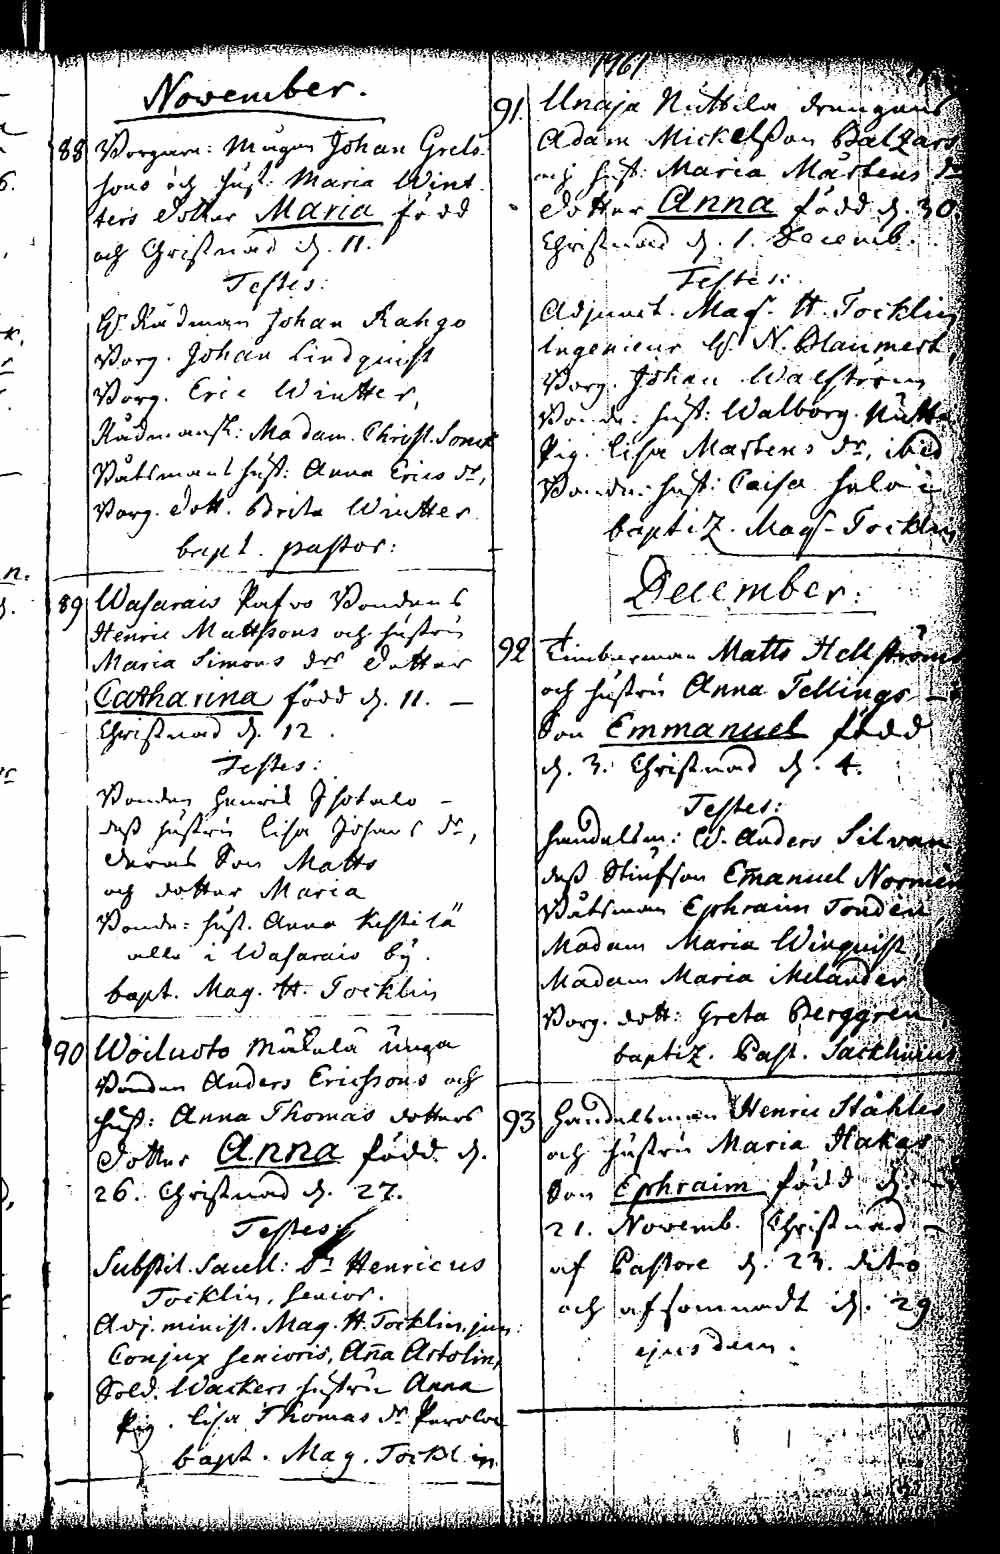 1761
November.
88 Borgare: Mågen Johan Grels
sons och hust: Maria Wint
ters dotter Maria född
och Christnad d. 11.
Testes:
H. Rådman Johan Rahgo
Borg. Johan Lindquist
Borg. Eric Wintter,
Rådmansk: Madam. Christ. Sonck
Båtsmans hust: Anna Erics dr,
Borg. dott. Brita Wintter
bapt. pastor:
89 Wasarais Pafvo Bondens
Henric Mattssons och hustru
Maria Simons drs dotter
Catharina född d. 11. —
Christnad d. 12.
Testes:
Bonden Henrik Isotalo –
dess hustru Lisa Johans dr,
deras Son Matts
och dotter Maria
Bonde: hust. Anna Kestilä
alla i Wasarais by.
bapt. Mag. H. Tocklin
90 Woiluoto Mäkelä unga
Bonden Anders Ericssons och
hust: Anna Thomas dotters
Dotter Anna född d.
26. Christnad d. 27.
Testes:
Substit. Sacell: Dn Henricus
Tocklin, Senior.
Adj. minist. Mag. H. Tocklin, jun:
Conjux Senioris, Aña Artolin,
Sold. Wackers hustru Anna
Pig. Lisa Thomas dr
bapt. Mag. Tocklin
91. Unaja Nuttila drängens
Adam Mickelsson Balzars
och hust: Maria Mårtens dr
dotter Anna född d. 30
Christnad d. 1. Decemb.
Testes:
Adjunct. Mag. H. Tocklin
Ingenieur H. N. Blanmert,
Borg. Johan Walström
Bonde: hust: Walborg
Pig. Lisa Martens dr, ibid
Bonde: hust: Caisa
baptiz. Mag. Tocklin
December.
92 Timberman Matts Hellströms
och hustru Anna Tellings –
Son Emmanuel född
d. 3. Christnad d. 4.
Testes:
Handelsm: W. Anders Silvan
dess Stiufson Emanuel Normén
Båtsman Ephraim Tondén,
Madam Maria Winquist,
Madam Maria Melander
Borg. dott: Greta Berggren
baptiz. Past. Sacklinius
93 Handelsman Henric Ståhles
och hustru Maria Hakas
Son Ephraim född d. —
21. Novemb. Christnad –
af Pastore d. 23. dito
och afsomnadt d. 29
ejusdem.